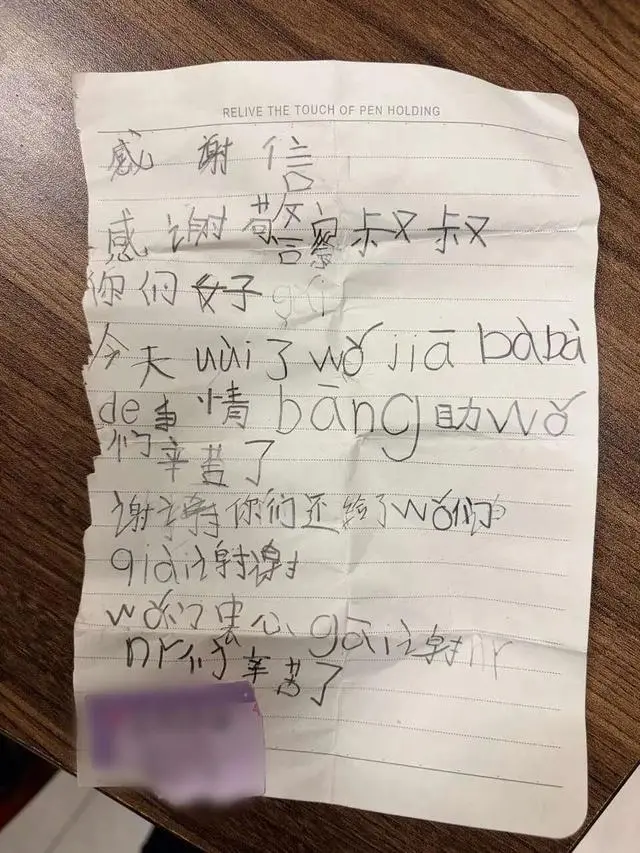 RELIVE THE TOUCH OF PEN HOLDING
感谢信
感谢警察叔叔
你们好
今天 uùi 了 wǒ jiā bàbà
de 事情 bāng 助 wǒ
们辛苦了
谢谢你们还给了 wǒ 们
qiái 谢谢
wǒ 们忠心 gāi 谢 nr
nr 们辛苦了